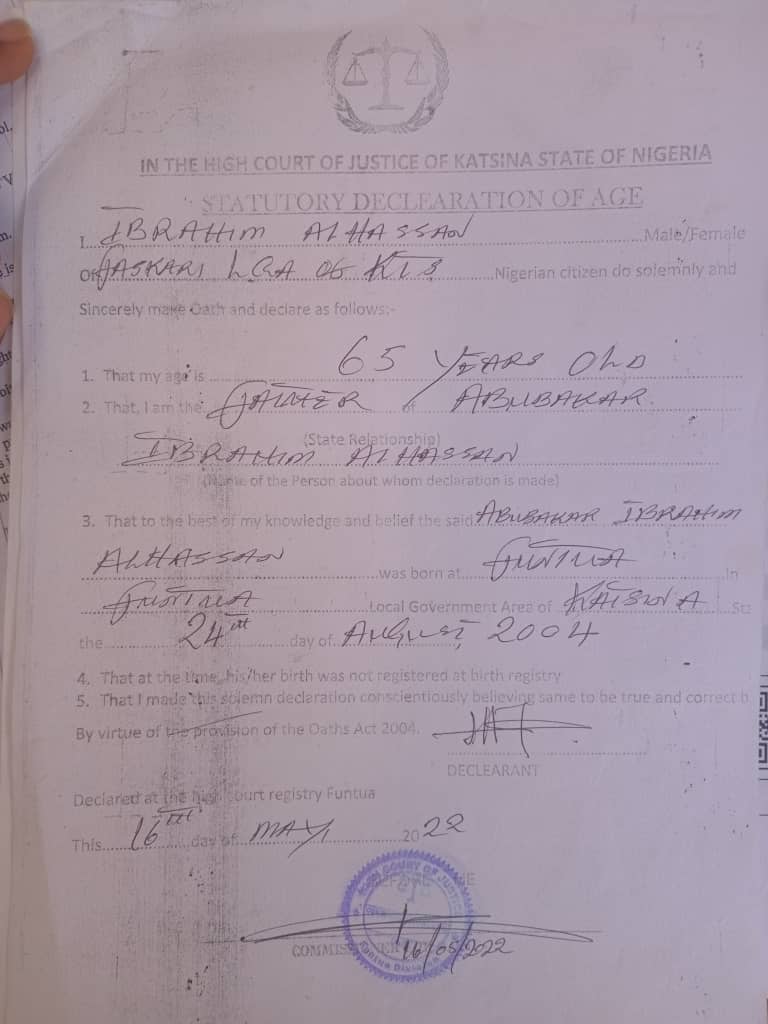 IN THE HIGH COURT OF JUSTICE OF KATSINA STATE OF NIGERIA
STATUTORY DECLEARATION OF AGE
I...IBRAHIM ALHASSAN...Male/Female
Of FASKARI LGA OF KTS...Nigerian citizen do solemnly and
Sincerely make Oath and declare as follows:-
1. That my age is...65 YEARS OLD
2. That, I am the FATHER of ABUBAKAR
(State Relationship)
IBRAHIM ALHASSAN
(Name of the Person about whom declaration is made)
3. That to the best of my knowledge and belief the said ABUBAKAR IBRAHIM
ALHASSAN...was born at...FUNTUA...In
FUNTUA...Local Government Area of KATSINA
the...24th...day of AUGUST, 2004
4. That at the time, his/her birth was not registered at birth registry
5. That I made this solemn declaration conscientiously believing same to be true and correct b
By virtue of the provision of the Oaths Act 2004.
DECLEARANT
Declared at the high court registry Funtua
This...16th...day of MAY, 2022
HIGH COURT OF JUSTICE
16/05/2022